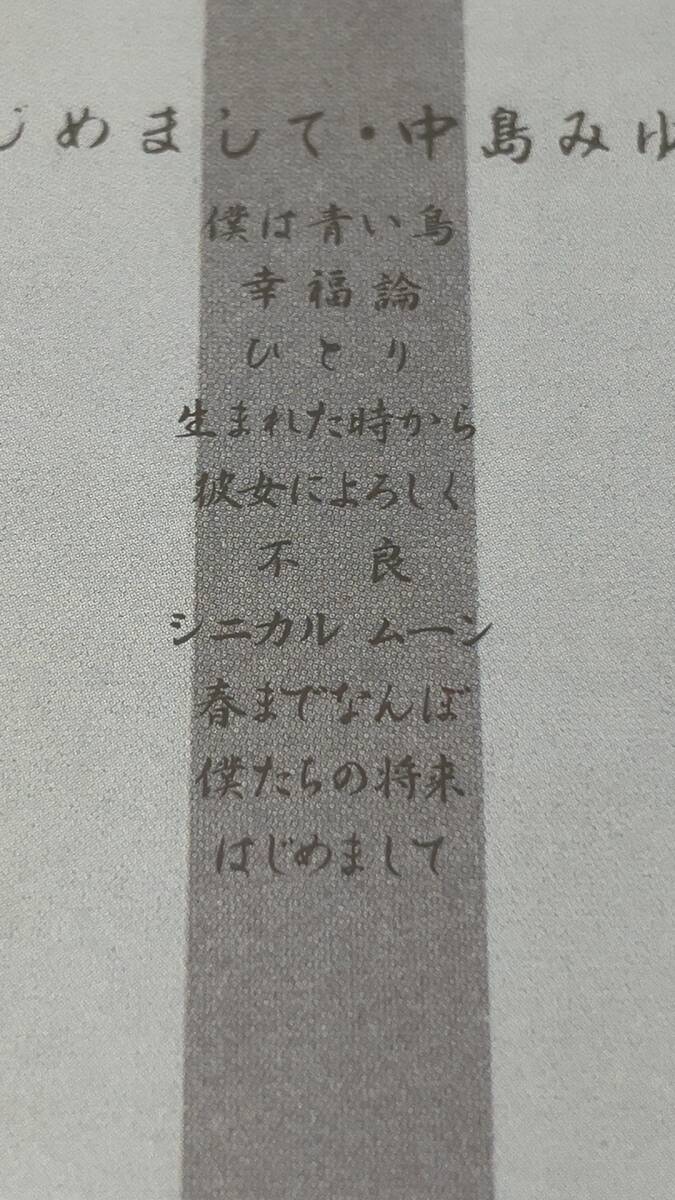 じめまして・中島みゆ
僕は青い鳥
幸福論
ひとり
生まれた時から
彼女によろしく
不良
シニカル ムーン
春までなんぼ
僕たちの将来
はじめまして